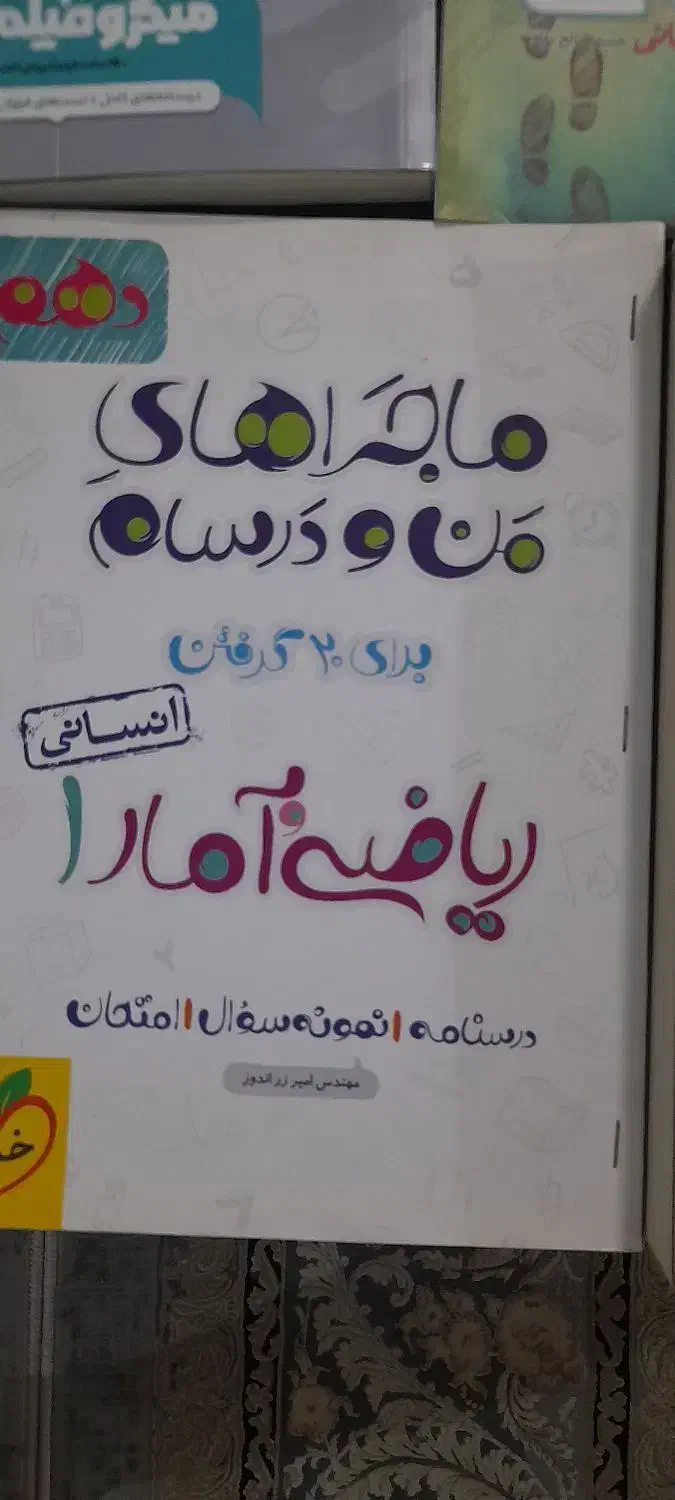 میکروفیلم
دهم
ماجَراهایِ
مَن و دَرسام
برای ۲۰ گرفتن
انسانی
ریاضی و آمار ۱
درسنامه | نمونه سؤال | امتحان
مهندس امیر زراندوز